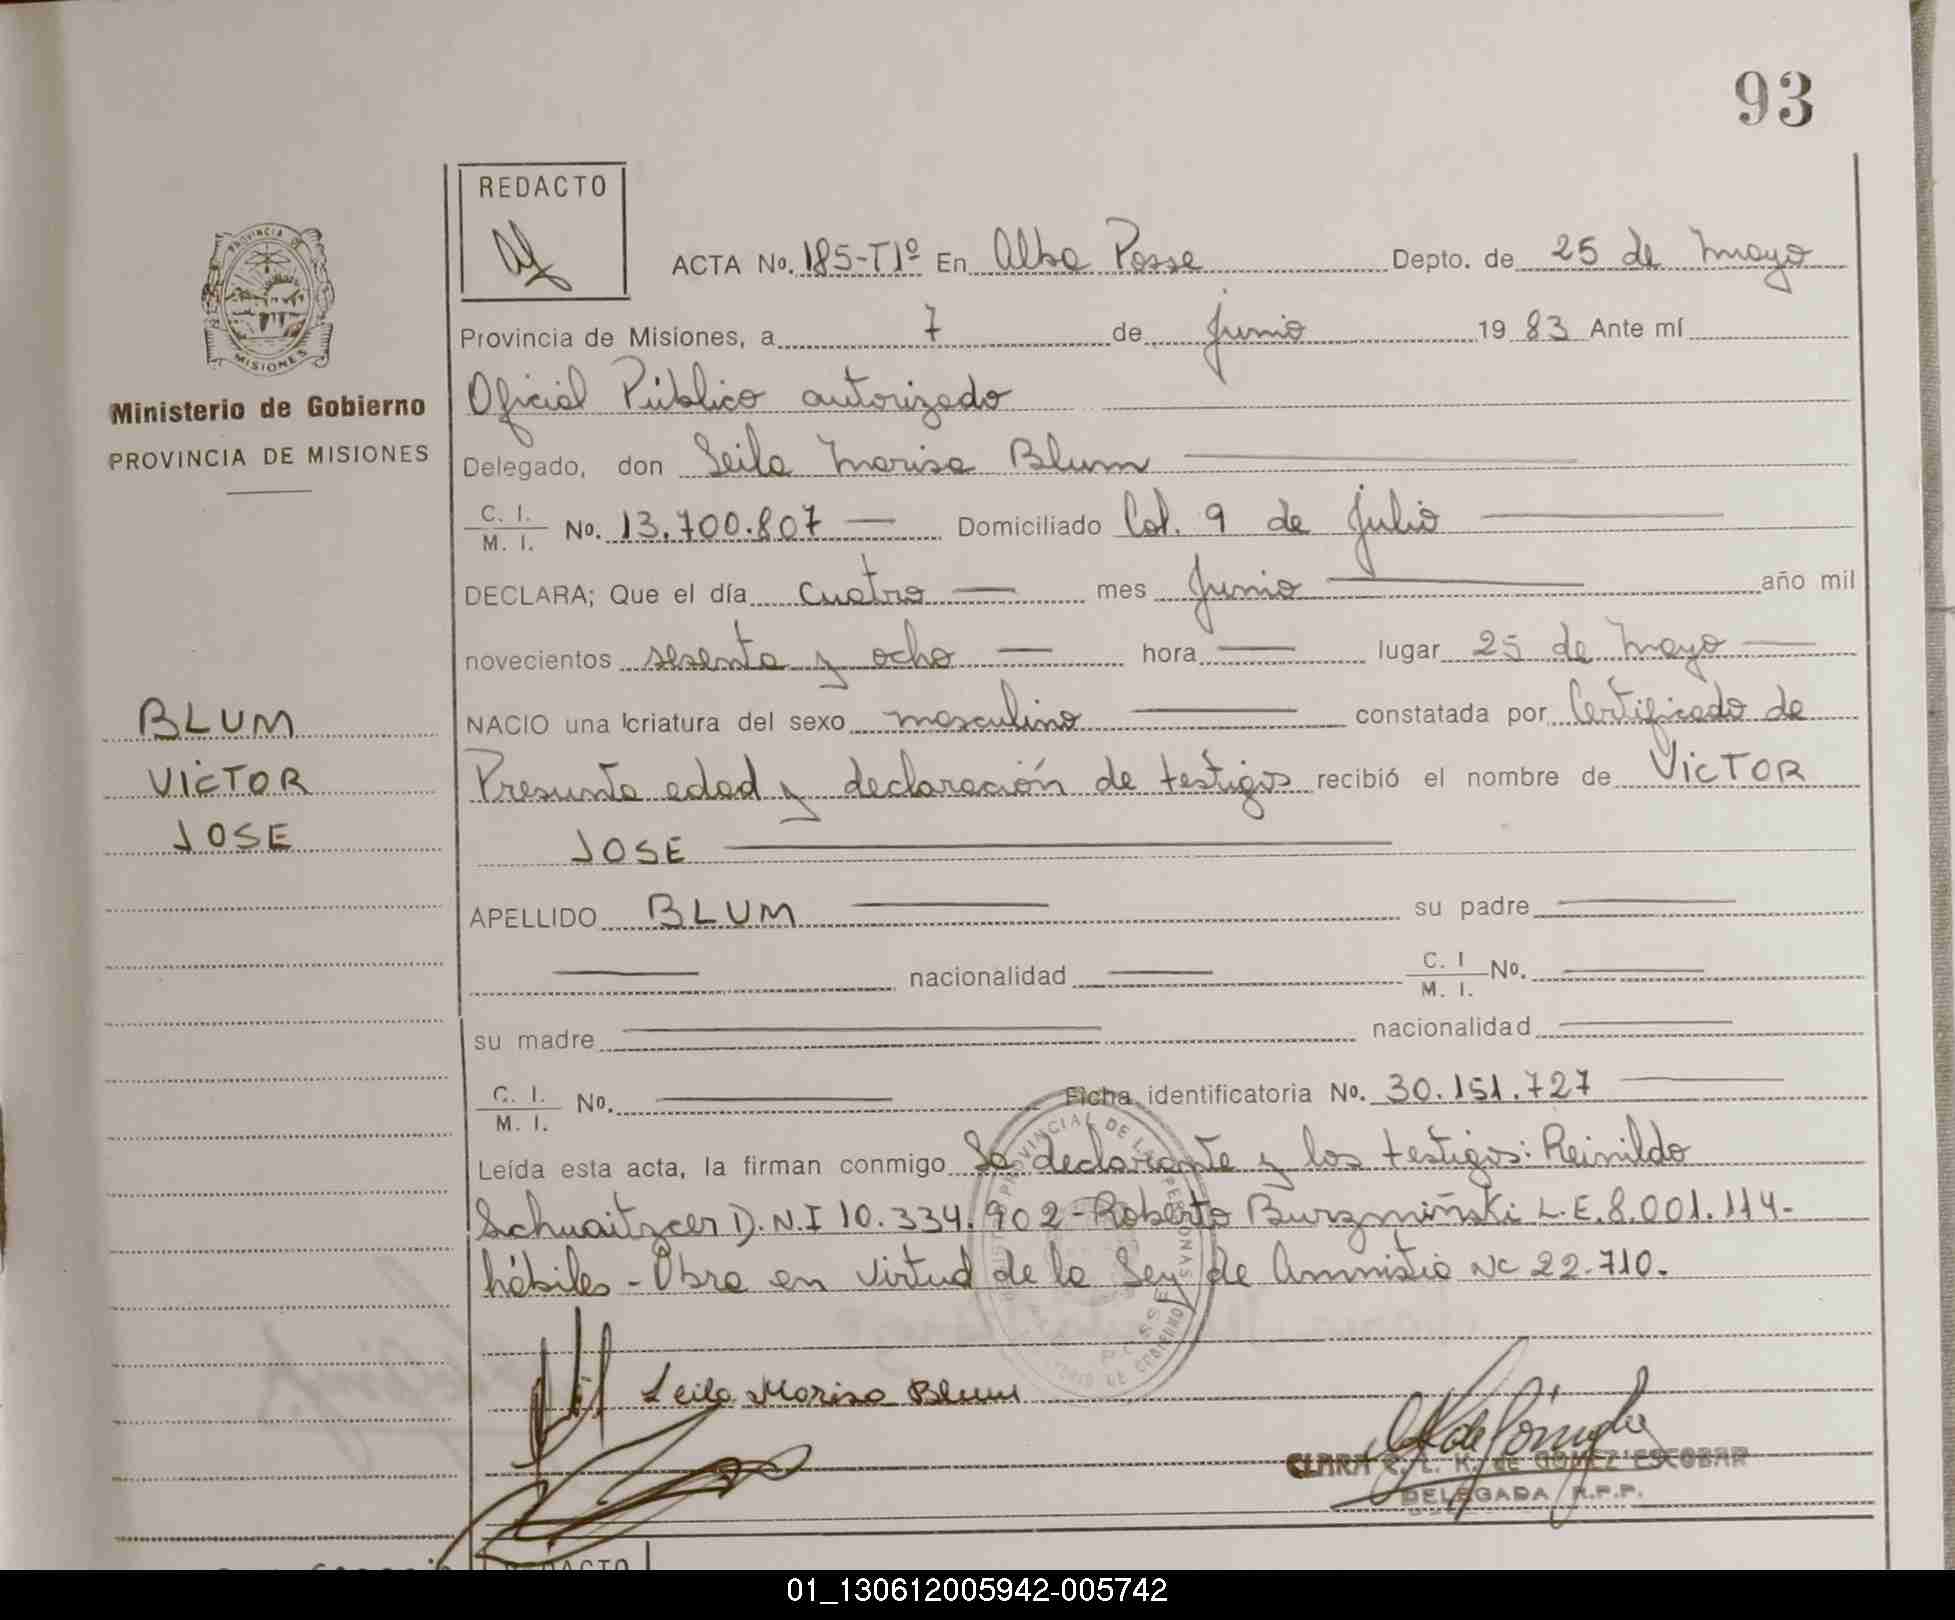 93
REDACTO
ACTA No. 185-T1º En Alba Posse Depto. de 25 de Mayo
Provincia de Misiones, a 7 de Junio 1983 Ante mí
Oficial Público autorizado
Delegado, don Leila Marisa Blum
C. I. / M. I. No. 13.700.807 Domiciliado Col. 9 de Julio
DECLARA; Que el día cuatro mes Junio año mil
novecientos sesenta y ocho hora lugar 25 de Mayo
NACIO una criatura del sexo masculino constatada por Certificado de
Presunta edad y declaración de testigos recibió el nombre de VICTOR
JOSE
APELLIDO BLUM su padre
nacionalidad C. I / M. I. No.
su madre nacionalidad
C. I. / M. I. No. Ficha identificatoria No. 30.151.727
Leída esta acta, la firman conmigo La declarante y los testigos: Reinildo
Schuaitzcer D.N.I 10.334.902 - Roberto Burzmiñski L.E. 8.001.114-
hábiles - Obra en virtud de la Ley de Amnistia Nº 22.710.
Leila Marisa Blum
CLARA R. L. K. de GOMEZ ESCOBAR
DELEGADA R.P.P.
PROVINCIA DE
MISIONES
Ministerio de Gobierno
PROVINCIA DE MISIONES
BLUM
VICTOR
JOSE
REDACTO
01_130612005942-005742